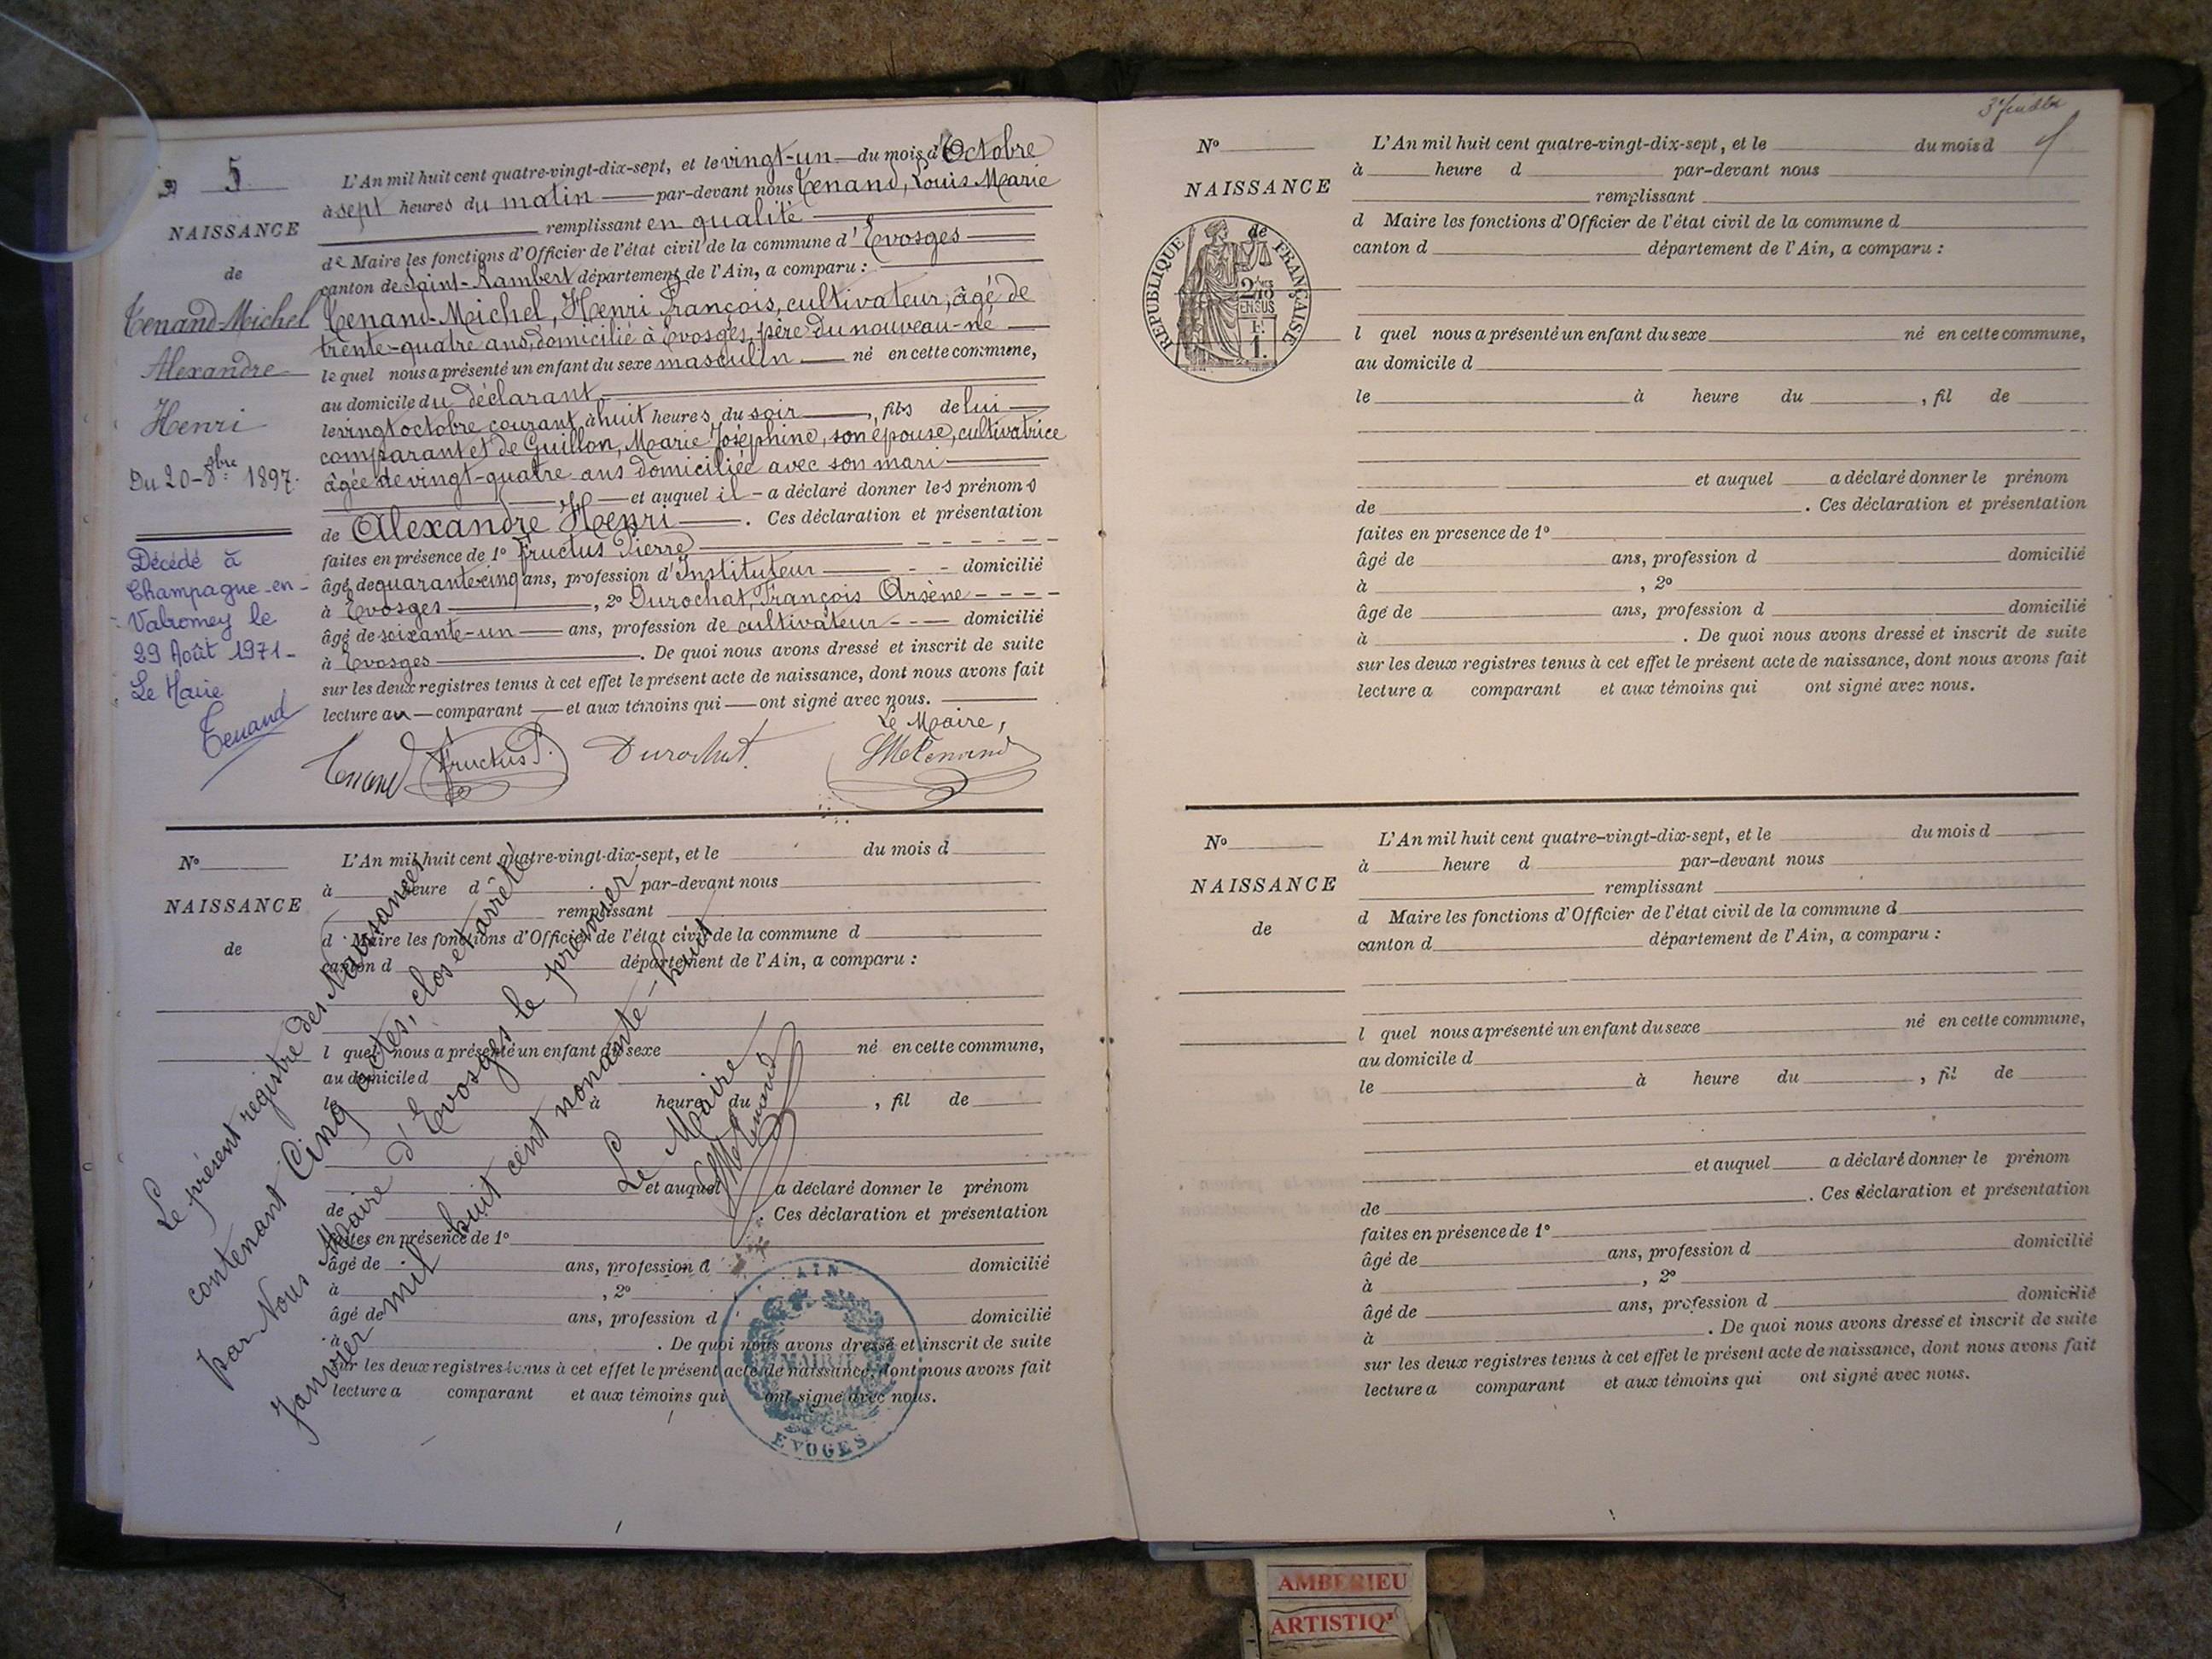 N° 5
NAISSANCE
de
Tenand-Michel
Alexandre
Henri
Du 20-8bre 1897.
Décédé à
Champagne-en-
Valromey le
29 Août 1971-
Le Maire
Tenand
L'An mil huit cent quatre-vingt-dix-sept, et le vingt-un du mois d'Octobre
à sept heures du matin par-devant nous Tenand, Louis Marie
remplissant en qualité
de Maire les fonctions d'Officier de l'état civil de la commune d'Evosges
canton de Saint-Rambert département de l'Ain, a comparu :
Tenand-Michel, Henri François, cultivateur, âgé de
trente-quatre ans, domicilié à Evosges, père du nouveau-né
le quel nous a présenté un enfant du sexe masculin né en cette commune,
au domicile du déclarant
le vingt octobre courant à huit heures du soir, fils de lui
comparant et de Guillon, Marie Joséphine, son épouse, cultivatrice
âgée de vingt-quatre ans domiciliée avec son mari
et auquel il a déclaré donner les prénoms
de Alexandre Henri. Ces déclaration et présentation
faites en présence de 1° Fructus Pierre
âgé de quarante-cinq ans, profession d'Instituteur domicilié
à Evosges, 2° Durochat, François Arsène
âgé de soixante-un ans, profession de cultivateur domicilié
à Evosges. De quoi nous avons dressé et inscrit de suite
sur les deux registres tenus à cet effet le présent acte de naissance, dont nous avons fait
lecture au comparant et aux témoins qui ont signé avec nous.
Le Maire,
Tenand Fructus P. Durochat. LMTenand
N°
NAISSANCE
de
L'An mil huit cent quatre-vingt-dix-sept, et le du mois d
à heure d par-devant nous
remplissant
d Maire les fonctions d'Officier de l'état civil de la commune d
canton d département de l'Ain, a comparu :
l quel nous a présenté un enfant du sexe né en cette commune,
au domicile d
le à heure du , fil de
et auquel a déclaré donner le prénom
de . Ces déclaration et présentation
faites en présence de 1°
âgé de ans, profession d domicilié
à , 2°
âgé de ans, profession d domicilié
à . De quoi nous avons dressé et inscrit de suite
sur les deux registres tenus à cet effet le présent acte de naissance, dont nous avons fait
lecture a comparant et aux témoins qui ont signé avec nous.
Le présent registre des Naissances
contenant Cinq actes, clos et arrêté
par Nous Maire d'Evosges le premier
Janvier mil huit cent nonante-huit
Le Maire
LMTenand
AIN
MAIRIE
EVOGES
3e feuillet
N°
NAISSANCE
de
REPUBLIQUE FRANÇAISE
2/10
EN SUS
1F.
1.
L'An mil huit cent quatre-vingt-dix-sept, et le du mois d
à heure d par-devant nous
remplissant
d Maire les fonctions d'Officier de l'état civil de la commune d
canton d département de l'Ain, a comparu :
l quel nous a présenté un enfant du sexe né en cette commune,
au domicile d
le à heure du , fil de
et auquel a déclaré donner le prénom
de . Ces déclaration et présentation
faites en presence de 1°
âgé de ans, profession d domicilié
à , 2°
âgé de ans, profession d domicilié
à . De quoi nous avons dressé et inscrit de suite
sur les deux registres tenus à cet effet le présent acte de naissance, dont nous avons fait
lecture a comparant et aux témoins qui ont signé avec nous.
N°
NAISSANCE
de
L'An mil huit cent quatre-vingt-dix-sept, et le du mois d
à heure d par-devant nous
remplissant
d Maire les fonctions d'Officier de l'état civil de la commune d
canton d département de l'Ain, a comparu :
l quel nous a présenté un enfant du sexe né en cette commune,
au domicile d
le à heure du , fil de
et auquel a déclaré donner le prénom
de . Ces déclaration et présentation
faites en présence de 1°
âgé de ans, profession d domicilié
à , 2°
âgé de ans, profession d domicilié
à . De quoi nous avons dressé et inscrit de suite
sur les deux registres tenus à cet effet le présent acte de naissance, dont nous avons fait
lecture a comparant et aux témoins qui ont signé avec nous.
AMBERIEU
ARTISTIQ